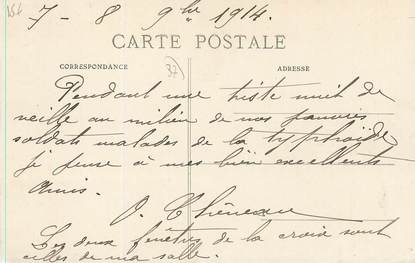 7 - 8 9bre 1914.
CARTE POSTALE
CORRESPONDANCE
37
ADRESSE
Pendant une triste nuit de
veille au milieu de nos pauvres
soldats malades de la typhoïde,
je pense à mes bien excellents
Amis.
Les deux fenêtres de la croix sont
celles de ma salle.